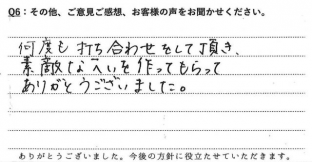 Q6：その他、ご意見ご感想、お客様の声をお聞かせください。
何度も打ち合わせをして頂き、
素敵なへいを作ってもらって
ありがとうございました。
ありがとうございました。今後の方針に役立たせていただきます。